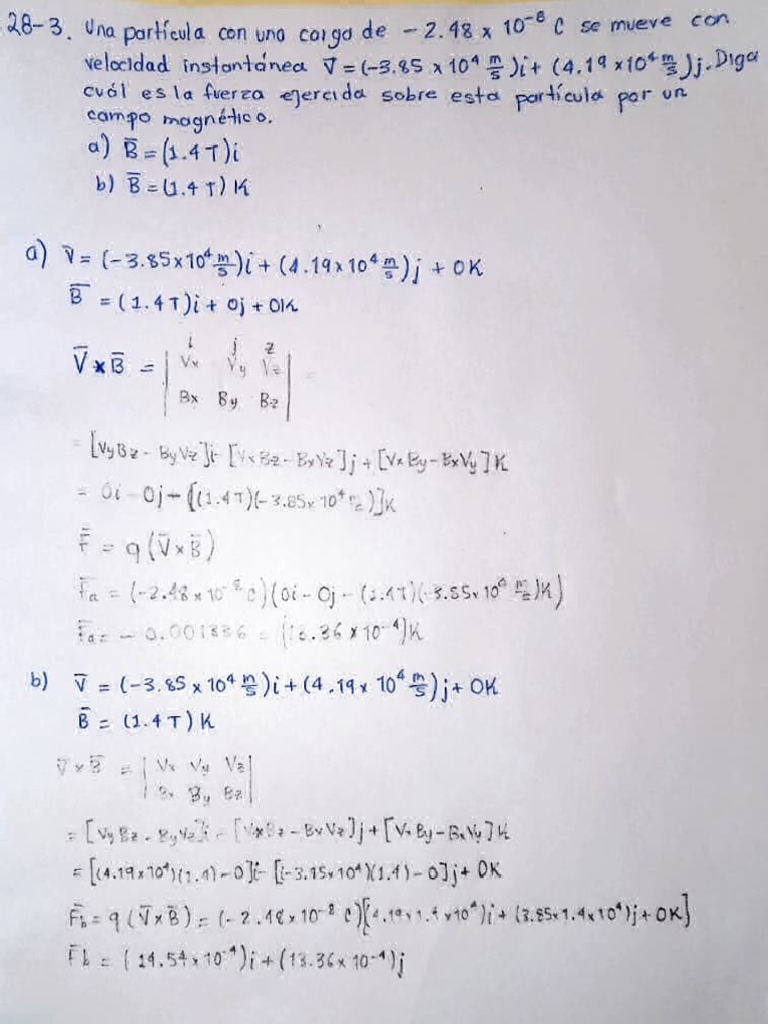 28-3. Una partícula con una carga de -2.48 x 10⁻⁸ C se mueve con
velocidad instantánea V̄ = (-3.85 x 10⁴ m/s)i + (4.19 x 10⁴ m/s)j. Diga
cuál es la fuerza ejercida sobre esta partícula por un
campo magnético.
a) B̄ = (1.4 T)i
b) B̄ = (1.4 T) K
a) V̄ = (-3.85 x 10⁴ m/s)i + (4.19 x 10⁴ m/s)j + 0K
B̄ = (1.4 T)i + 0j + 0K
i j z
V̄ x B̄ = | Vx Vy Vz | =
Bx By Bz
= [VyBz - ByVz]i - [VxBz - BxVz]j + [VxBy - BxVy]K
= 0i - 0j - [(1.4T)(-3.85 x 10⁴ )]K
F̄ = q (V̄ x B̄)
F̄a = (-2.48 x 10⁻⁸ C)(0i - 0j - (1.4T)( )K)
F̄a = - 0.001336 = x 10⁻⁴)K
b) V̄ = (-3.85 x 10⁴ m/s)i + (4.19 x 10⁴ m/s)j + 0K
B̄ = (1.4 T) K
V̄ x B̄ = | Vx Vy Vz |
| Bx By Bz |
= [VyBz - ByVz]i - [VxBz - BxVz]j + [VxBy - BxVy]K
= [(4.19 x 10⁴)(1.4) - 0]i - [ x 10⁴)(1.4) - 0]j + 0K
F̄b = q (V̄ x B̄) = (-2.48 x 10⁻⁸ C)[(4.19 x 1.4 x 10⁴)i + (3.85 x 1.4 x 10⁴)j + 0K]
F̄b = (14.54 x 10⁻⁴)i + (13.36 x 10⁻⁴)j